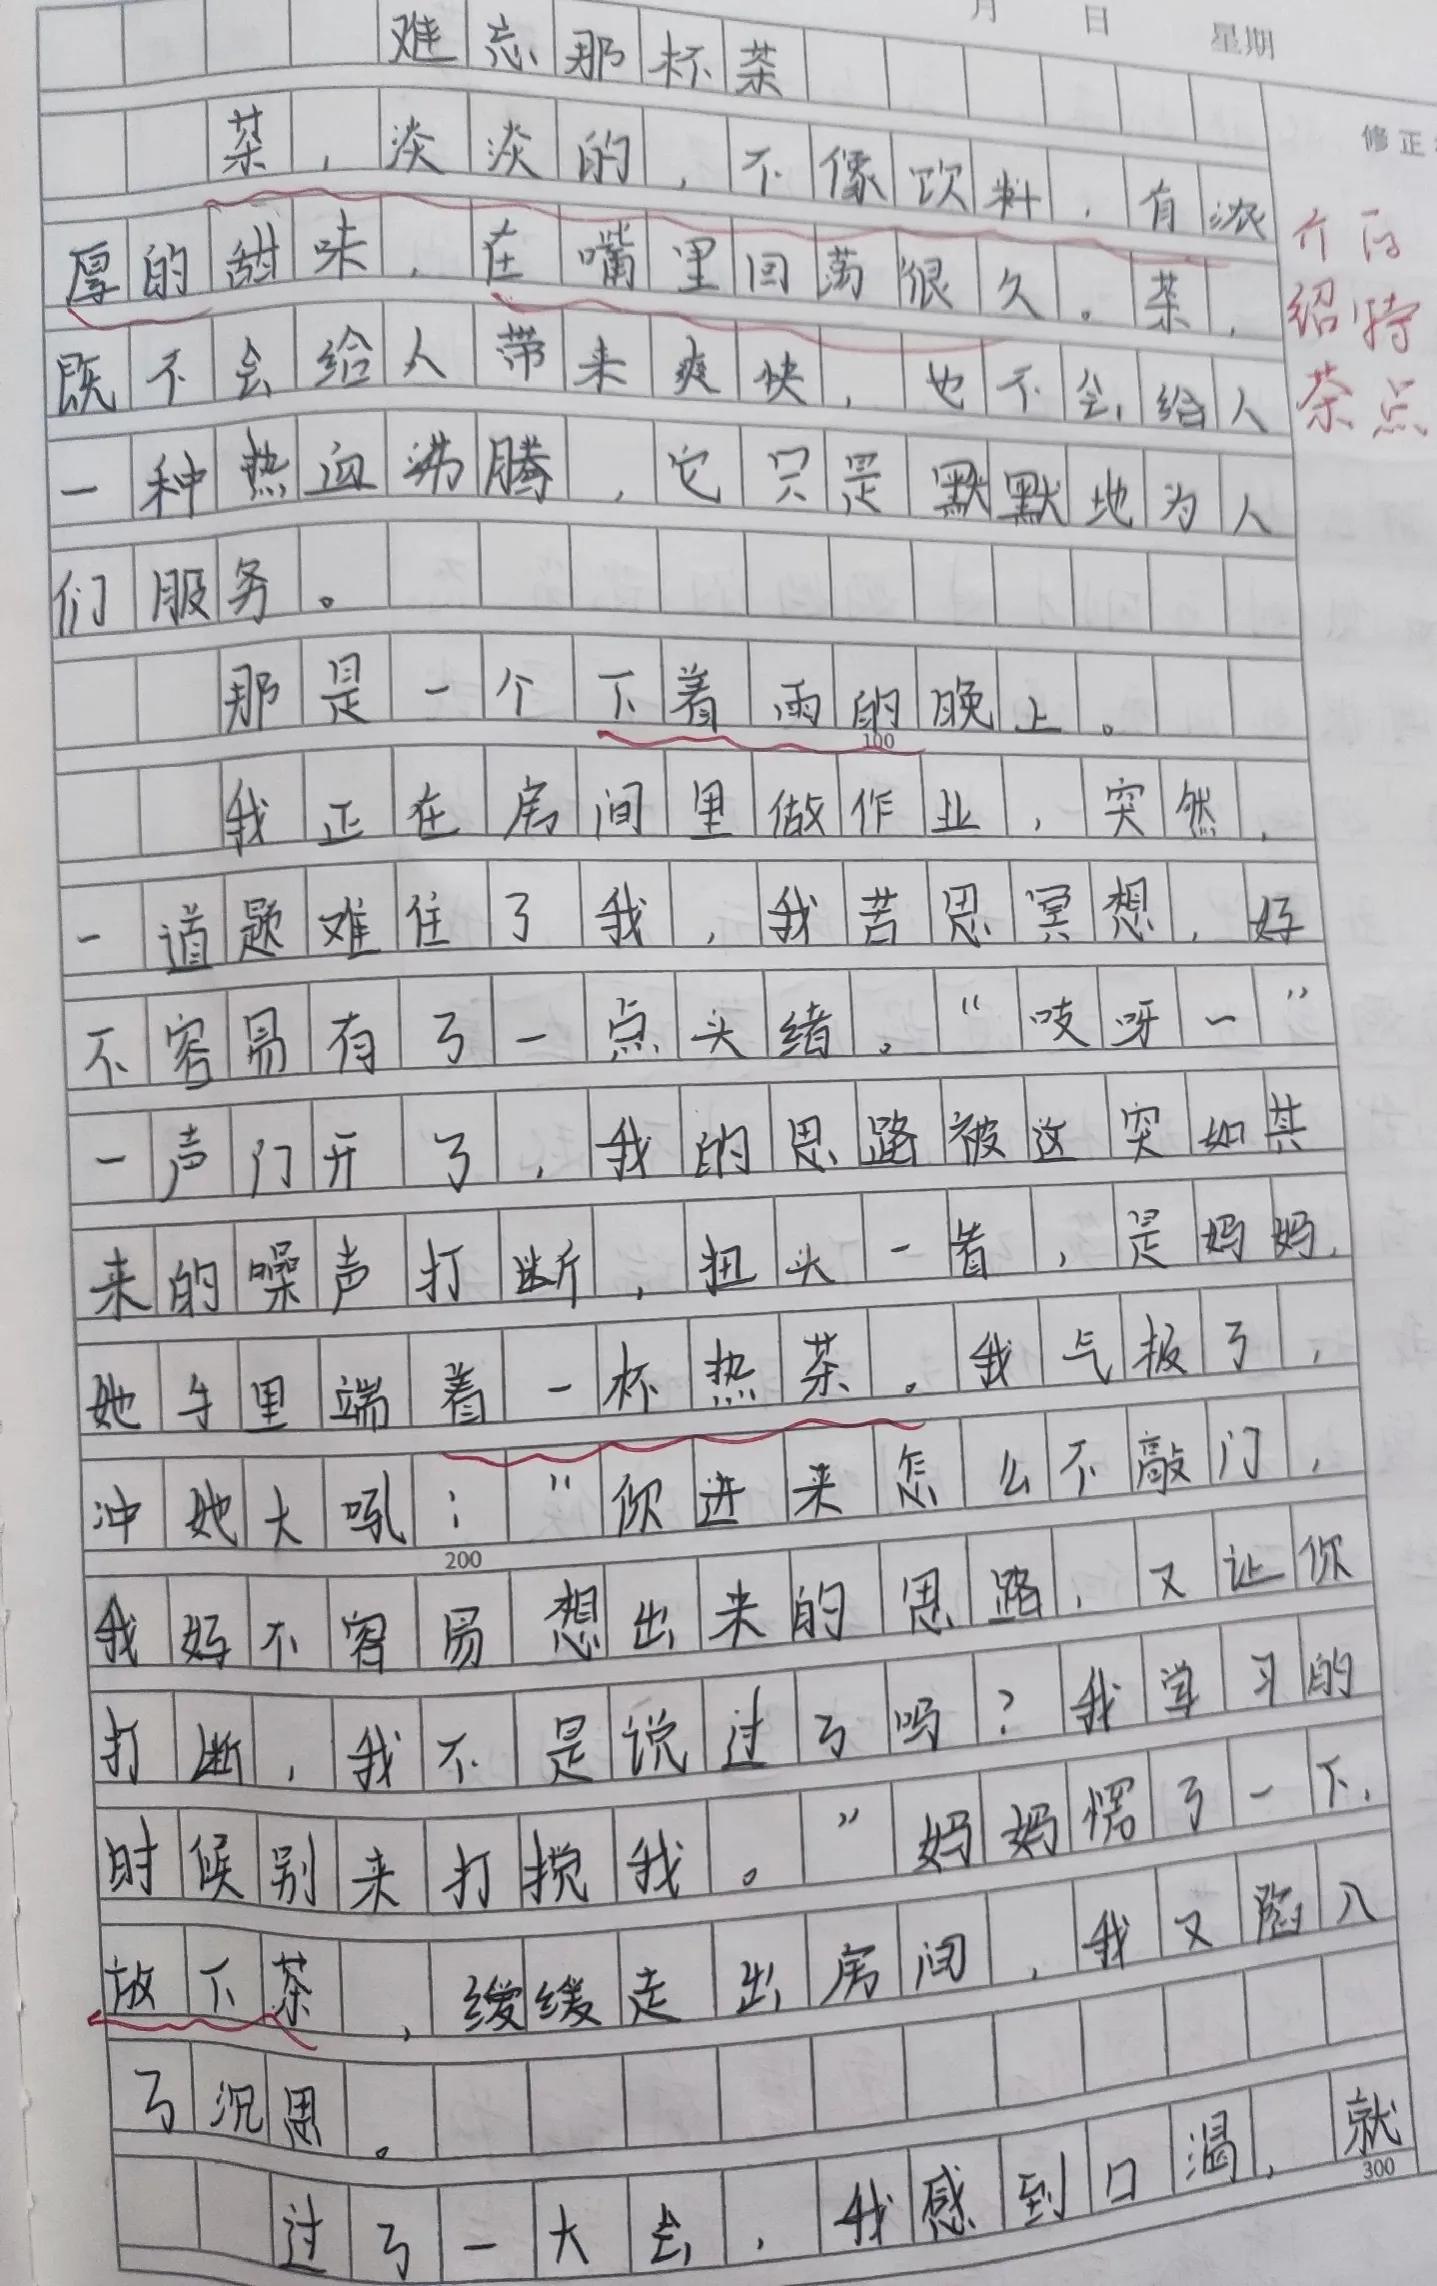 月 日 星期
难忘那杯茶
修正
茶，淡淡的，不像饮料，有浓
厚的甜味，在嘴里回荡很久。茶，
介绍茶的特点
既不会给人带来爽快，也不会给人
一种热血沸腾，它只是默默地为人
们服务。
那是一个下着雨的晚上。
100
我正在房间里做作业，突然，
一道题难住了我，我苦思冥想，好
不容易有了一点头绪。“吱呀一”
一声门开了，我的思路被这突如其
来的噪声打断，扭头一看，是妈妈，
她手里端着一杯热茶。我气极了，
冲她大吼：“你进来怎么不敲门，
200
我好不容易想出来的思路，又让你
打断，我不是说过了吗？我学习的
时候别来打搅我。”妈妈愣了一下，
放下茶，缓缓走出房间，我又陷入
了沉思。
过了一大会，我感到口渴，就
300